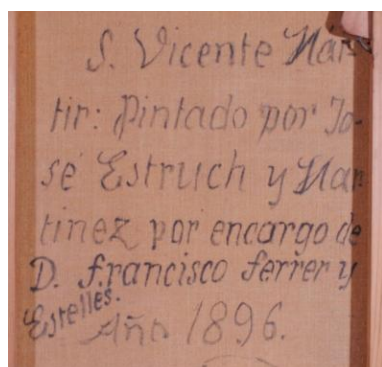 S. Vicente Már-
tir: Pintado por Jo-
sé Estruch y Mar-
tinez por encargo de
D. francisco ferrer y
Estellés.
Año 1896.